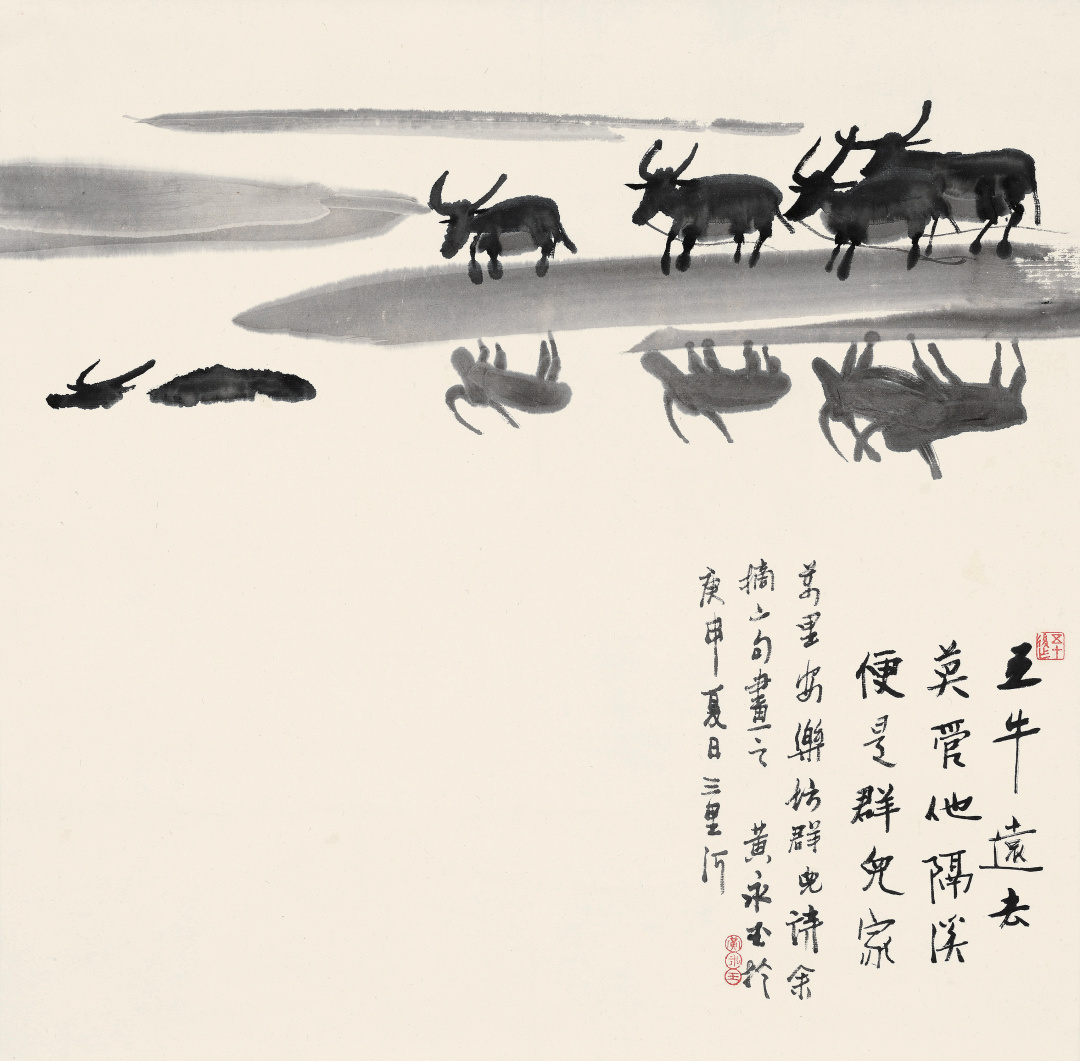 五牛遠去
莫管他隔溪
便是群兒家
萬里安樂坊群兒詩余
摘二句畫之 黄永玉於
庚申夏日三里河
黃永玉